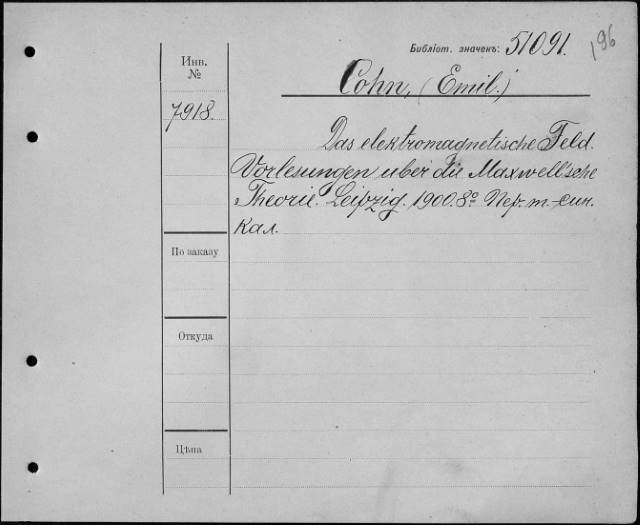 Библіот. значекъ: 51091.
196
Инв. №
7918.
Cohn, (Emil.)
Das elektromagnetische Feld.
Vorlesungen uber die Maxwell'sche
Theorie. Leipzig. 1900. 8º
кал.
По заказу
Откуда
Цѣна